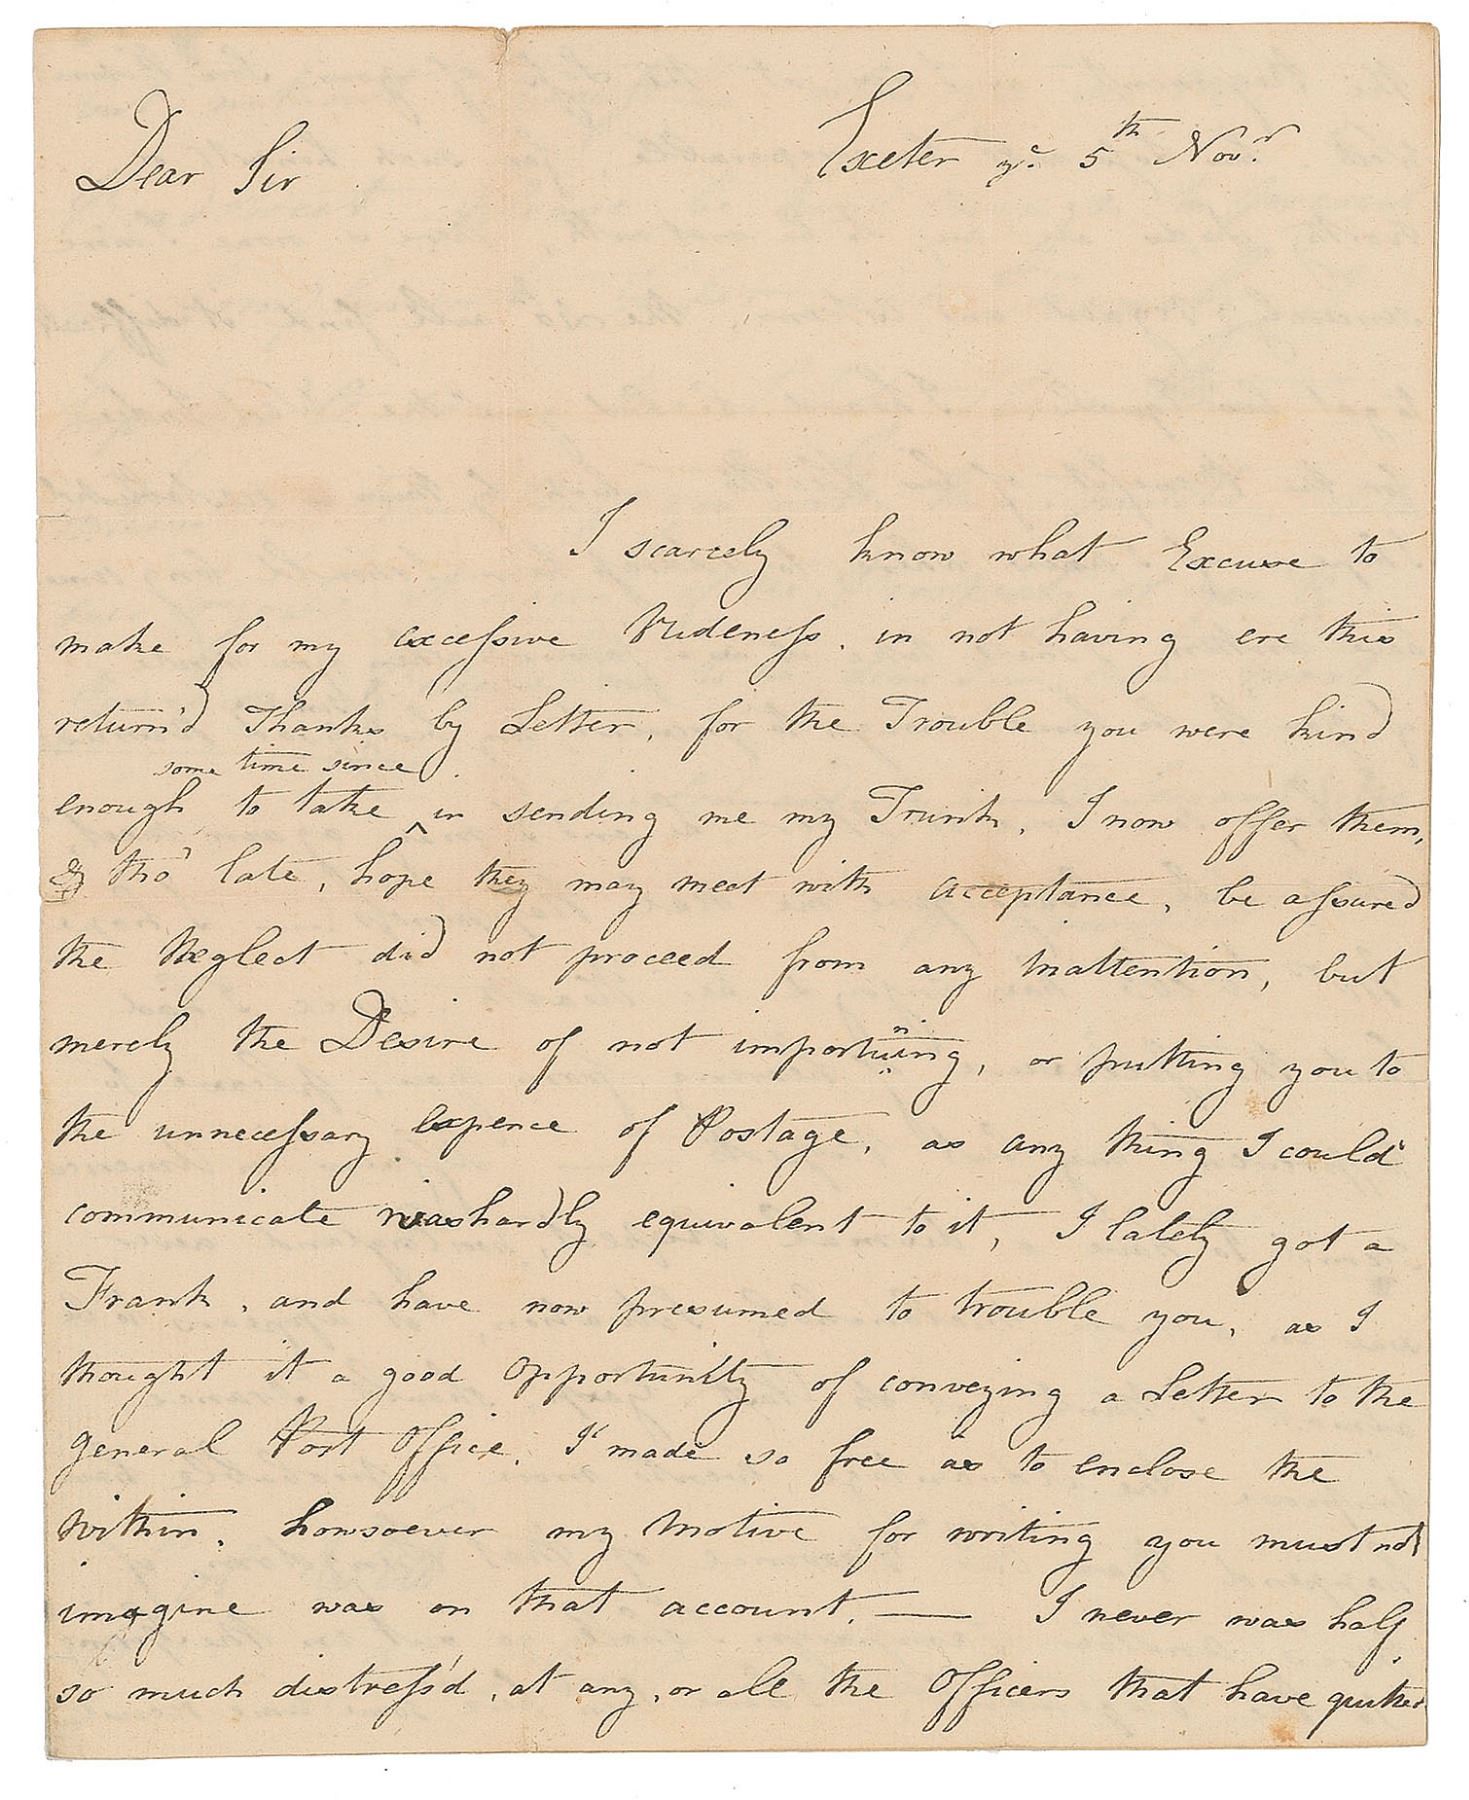 Dear Sir
Exeter ye. 5th Novr.
I scarcely know what Excuse to
make for my excessive Rudeness. in not having ere this
return'd Thanks by Letter, for the Trouble you were kind
some time since
enough to take ^ in sending me my Trunk, I now offer them,
& tho' late, hope they may meet with acceptance, be assured
the Neglect did not proceed from any Inattention, but
merely the Desire of not importuning, or putting you to
the unnecessary expence of Postage, as any thing I could
communicate was hardly equivalent to it, I lately got a
Frank, and have now presumed to trouble you, as I
thought it a good Opportunity of conveying a Letter to the
general Post Office, I made so free as to enclose the
within, howsoever my Motive for writing you must not
imagine was on that account. — I never was half
so much distress'd, at any, or all the Officers that have quitted